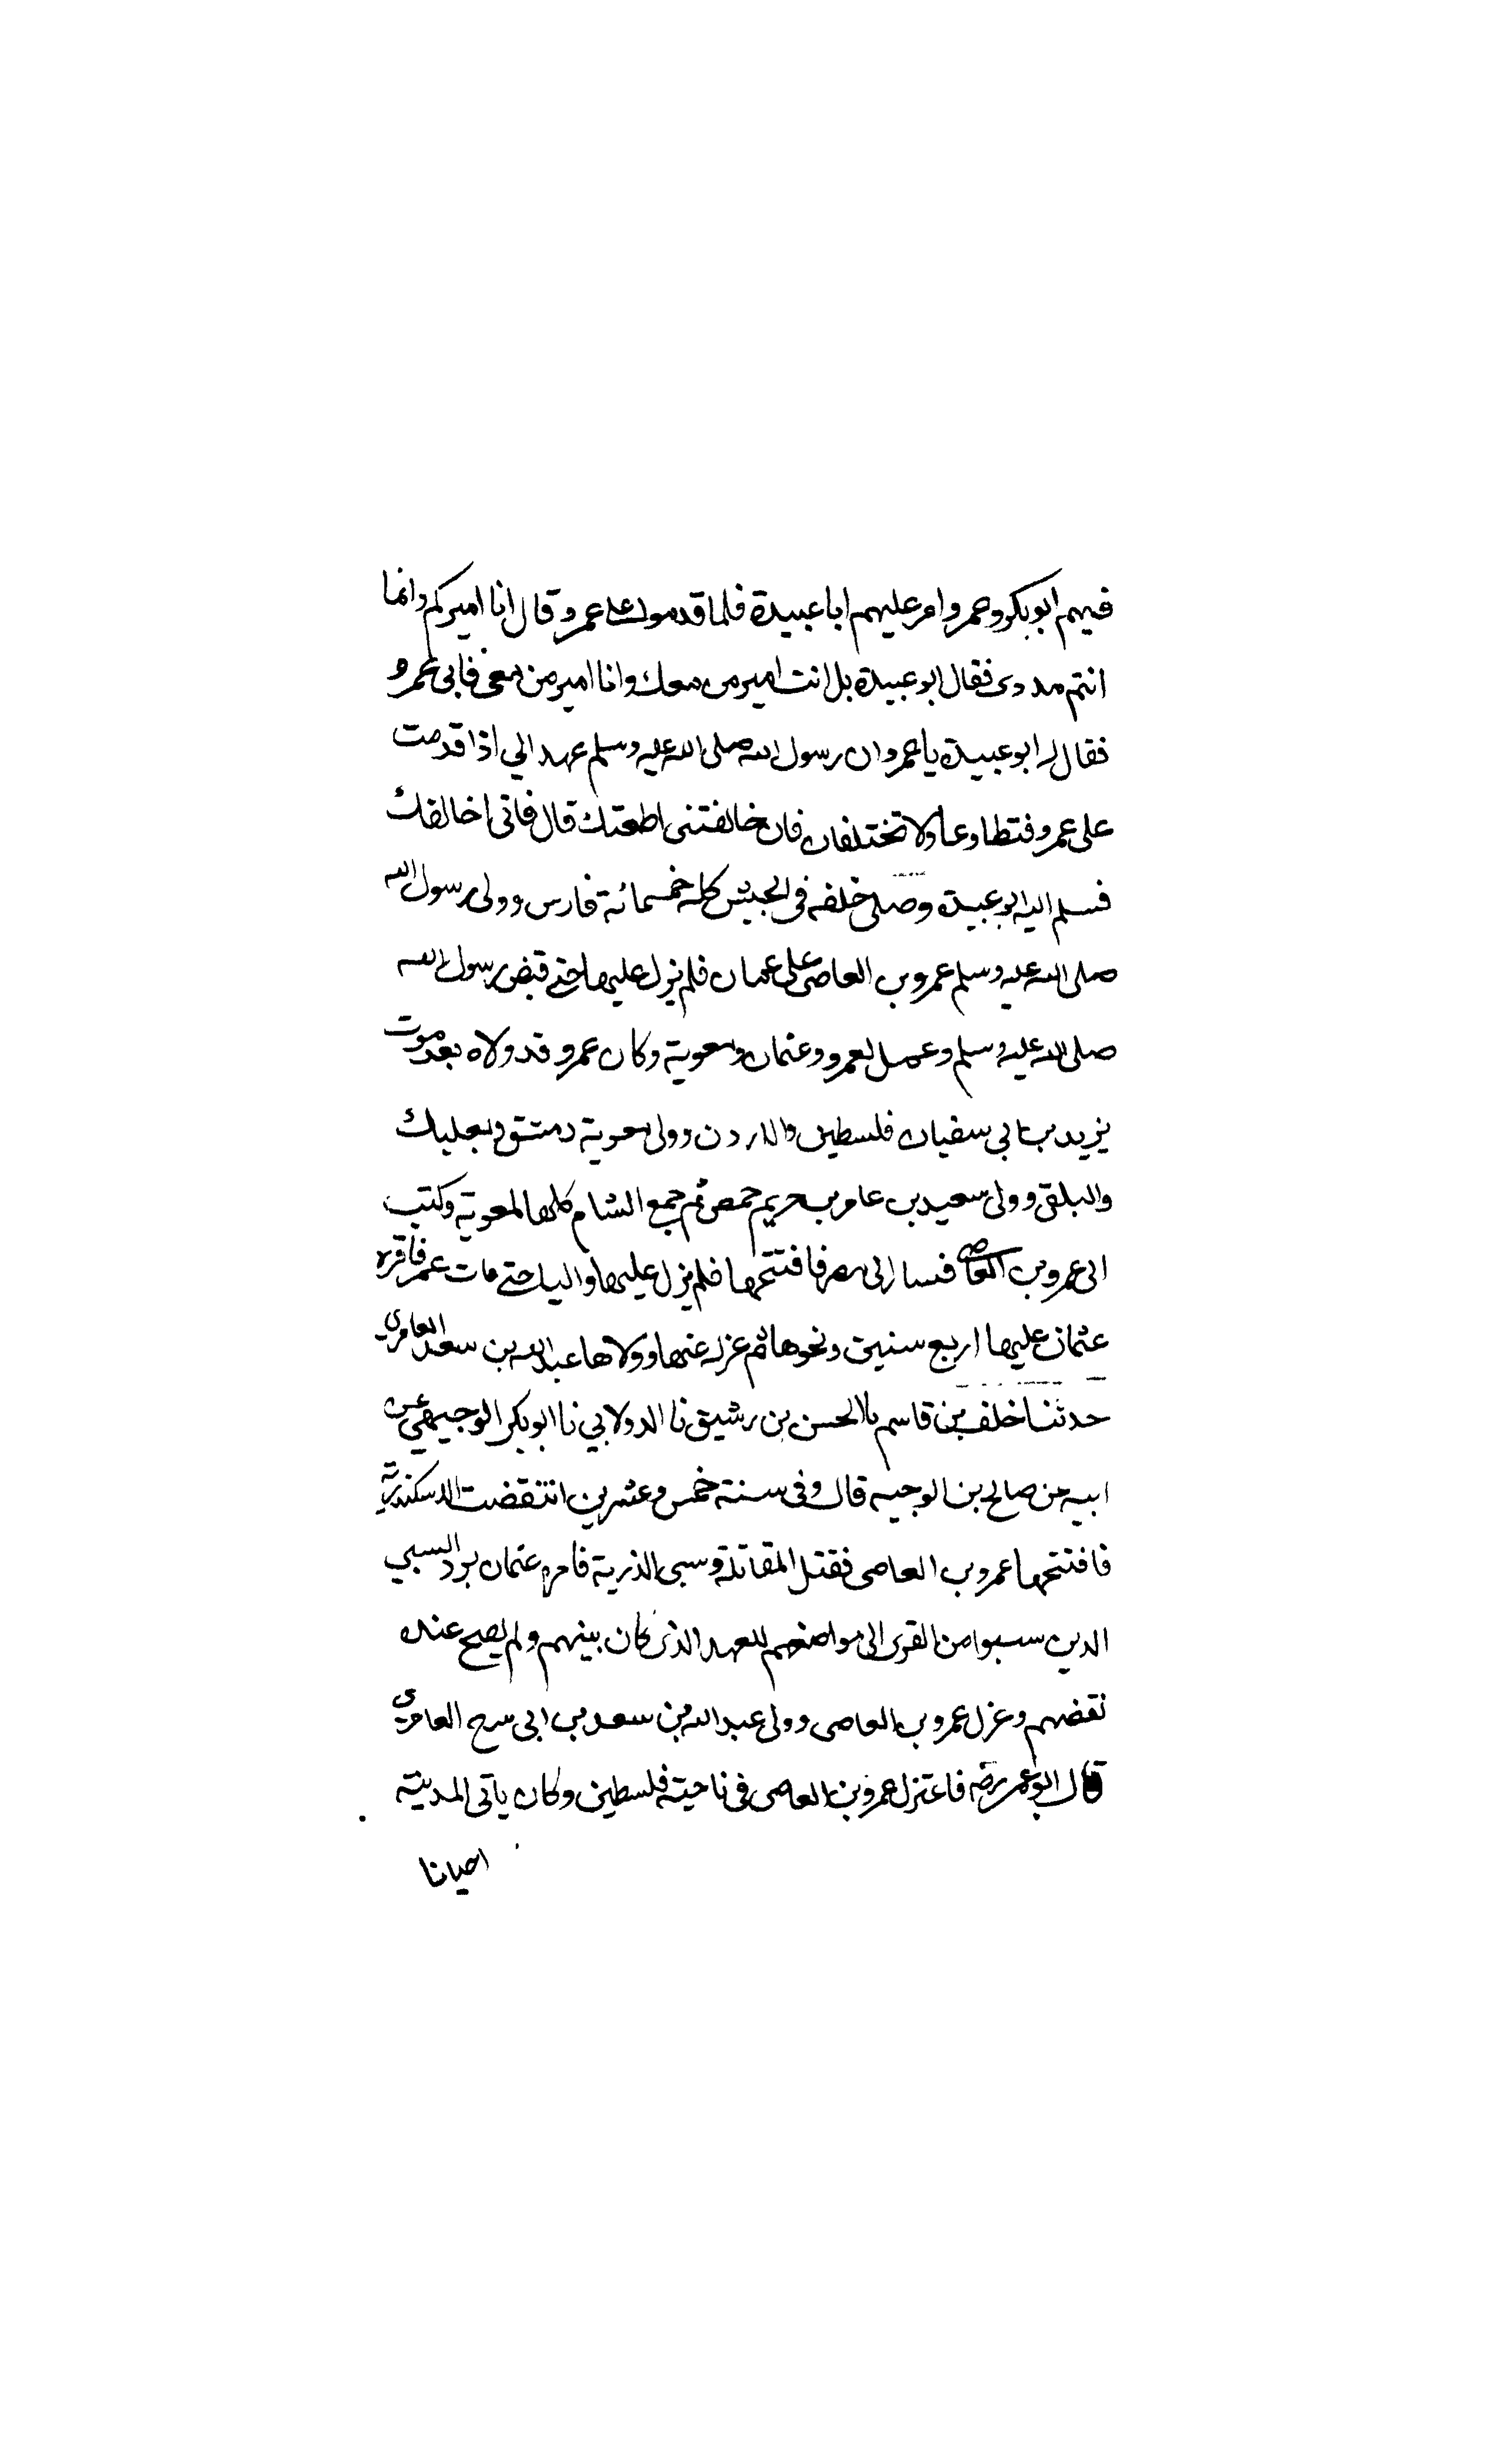 فيهم ابو بكر وعمر وامر عليهم ابا عبيدة فلما قدموا على عمرو قال انا اميركم وانما
انتم مددى فقال ابو عبيدة بل انت امير من معك وانا امير من معى فابى عمرو
فقال له ابو عبيدة يا عمرو ان رسول الله صلى الله عليه وسلم عهد الي اذا قدمت
على عمرو فتطاوعا ولا تختلفان فان خالفتنى اطعتك قال فانى اخالفك
فسلم اليه ابو عبيدة وصلى خلفه فى الجيش كله خمسمائة فارس وولى رسول الله
صلى الله عليه وسلم عمرو بن العاصى على عمان فلم يزل عليها حتى قبض رسول الله
صلى الله عليه وسلم وعمل لعمر وعثمان ومعوية وكان عمر وقد ولاه بعد موت
يزيد بن ابى سفيان فلسطين والاردن وولى معوية دمشق وبعلبك
والبلقى وولى سعيد بن عامر بن حريم حمص ثم جمع الشام كلها لمعوية وكتب
الى عمرو بن العاصى فسار الى مصر فافتتحها فلم يزل عليها واليا حتى مات عمر فاقره
عثمان عليها اربع سنين ونحوها ثم عزله عنها وولاها عبد الله بن سعد العامري
حدثنا خلف بن قاسم نا الحسن بن رشيق نا الدولابي نا ابو بكر الوجيهي عن
ابيه عن صالح بن الوجيه قال وفى سنة خمس وعشرين انتقضت الاسكندرية
فافتتحها عمرو بن العاصى فقتل المقاتلة وسبى الذرية فامره عثمان برد السبي
الذين سبوا من القرى الى مواضعهم للعهد الذى كان بينهم ولم يصح عنده
نقضهم وعزل عمرو بن العاصى وولى عبد الله بن سعد بن ابى سرح العامري
قال ابو عمر رضه فاعتزل عمرو بن العاصى فى ناحية فلسطين وكان ياتى المدينة
احيانا